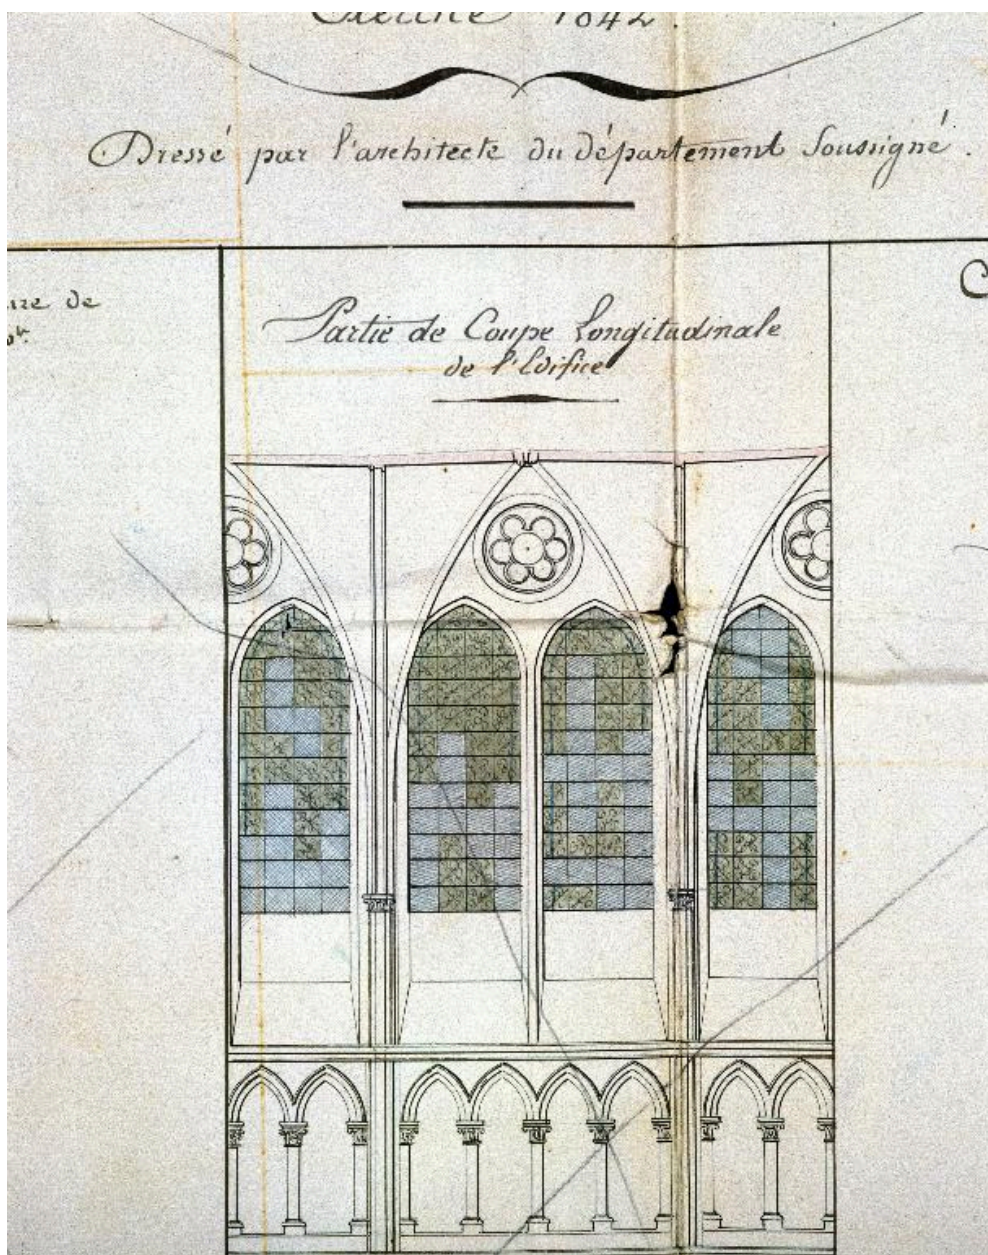 1842.
Dressé par l'architecte du département Soussigné.
de
Partie de Coupe Longitudinale
de l'Edifice
C